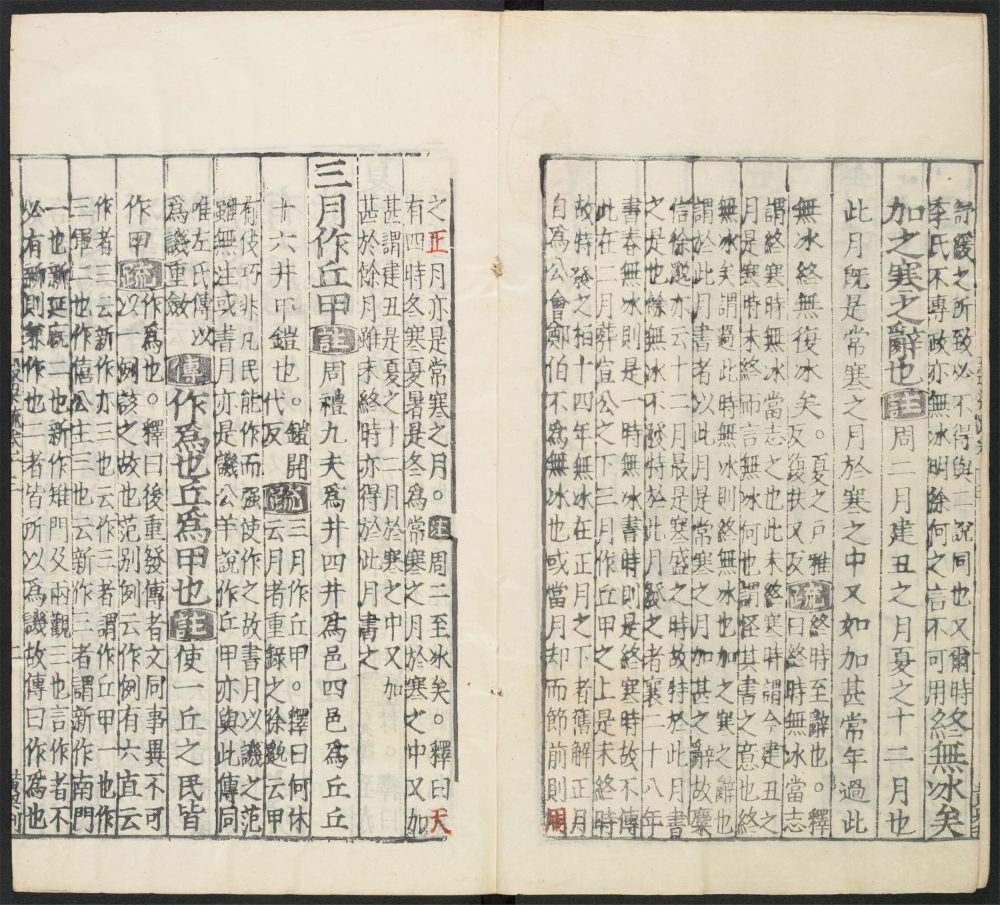 舒緩之所致必不得與二說同也又爾時終無冰矣
季氏不專政亦無冰明徐何之言不可用
加之寒之辭也註周二月建丑之月夏之十二月也
此月既是常寒之月於寒之中又如加甚常年過此
無冰終無復冰矣。夏之戶雅反復扶又反疏終時至辭也。釋曰終時無冰當志
謂終寒時無冰當志之也此未終寒時謂今建丑之
月是也寒時未終而言無冰何也謂怪其書之意也終
無冰矣謂過此時無冰則終無冰也加之寒之辭也
謂於此月書者以此月是常寒之月加甚之辭故麋
信徐邈亦云十二月最是寒盛之時故特於此月書
之是也餘無冰不於時特於此月發之者襄二十八年
書春無冰則是一時無冰書時則是終寒時故不傳
此在二月葬宣公之下三月作丘甲之上是未終時
故特發之桓十四年無冰在正月之下者舊解正月
自為公會鄭伯不為無冰也或當月却而節前則周
之正月亦是常寒之月。註周二至冰矣。釋曰天
有四時冬寒夏暑是冬為常寒之月於寒之中又加
甚謂建丑是夏之十二月於寒之中又加
甚於餘月雖未終時亦得於此月書之
三月作丘甲註周禮九夫為井四井為邑四邑為丘丘
十六井甲鎧也。鎧開代反疏三月作丘甲。釋曰何休云月者重錄之徐邈云甲
有伎巧非凡民能作而强使作之故書月以譏之范
雖無注或書月亦是譏公羊說作丘甲亦與此傳同
唯左氏傳以為譏重斂傳作為也丘為甲也註使一丘之民皆
作甲疏作為也。釋曰後重發傳者文同事異不可以一例該之故也范別例云作例有六直云
作者三云新作亦三也云作三者謂作丘甲一也作
三軍二也作僖公主三也云新作三者謂新作南門
一也新延廐二也新作雉門及兩觀三也言作者不
必有新則兼作也二者皆所以為譏故傳曰作為也